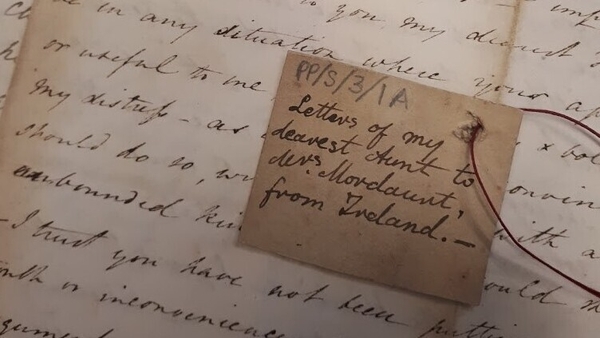 you, my dearest
in any situation where your
or useful to me
my distreſs - as
should do so,
unbounded
- I trust you have not been
or
PP/S/3/1A
Letters of my
dearest Aunt to
Mrs 'Mordaunt'
from Ireland. —